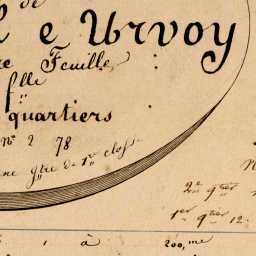 de
e Urvoy
re Feuille
flle
quartiers
No 2 78
ne qtre de 1re classe
2e qtier
1er qtier 12
1 à 200, me